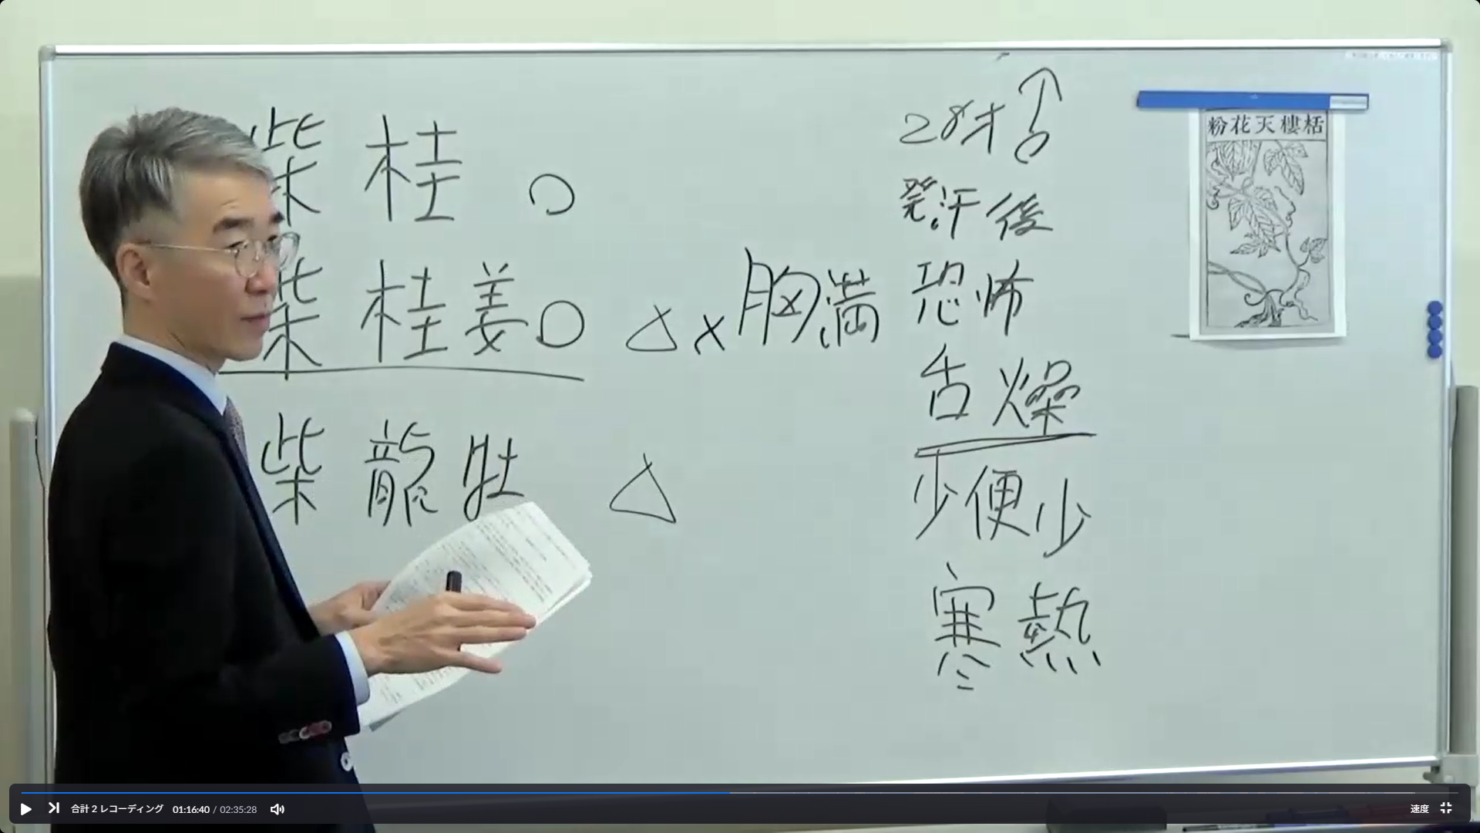 柴桂○
柴桂姜○ △×胸満
柴龍牡 △
28才
発汗後
恐怖
舌燥
少便少
寒熱
粉花天樓栝
合計 2 レコーディング 01:16:40 / 02:35:28
速度